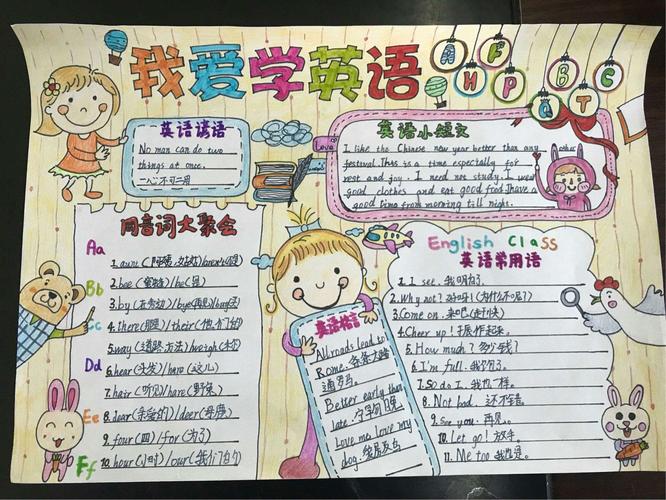 我爱学英语
A F
H P B C
Q T
英语谚语
No man can do two
things at once.
一心不可二用
英语小短文
I like the Chinese new year better than any
festival. This is a time especially for
rest and joy. I need not study. I wear
good clothes and eat good food. I have a
good time from morning till night.
同音词大聚会
Aa
Bb
Cc
Dd
Ee
Ff
1. aunt
2. bee (蜜蜂) / be (是)
3. by / bye (再见) / buy (买)
4. there (那里) / their (他们的)
5. way (道路.方法) / weigh (称)
6. hear (头发) / here (这儿)
7. hair (听见) / hare (野兔)
8. dear (亲爱的) / deer (母鹿)
9. four (四) / for (为了)
10. hour (小时) / our (我们的)
英语格言
All roads lead to
Rome. 条条大路
通罗马.
Better early than
late. 宁早勿晚
Love me love my
dog. 爱屋及乌
English Class
英语常用语
1. I see. 我明白了.
2. Why not? 好呀! (为什么不呢?)
3. Come on. 来吧 (赶快)
4. Cheer up! 振作起来.
5. How much? 多少钱?
6. I'm full. 我饱了.
7. So do I. 我也一样.
8. Not bad. 还不错.
9. See you. 再见.
10. Let go! 放手.
11. Me too. 我也是.